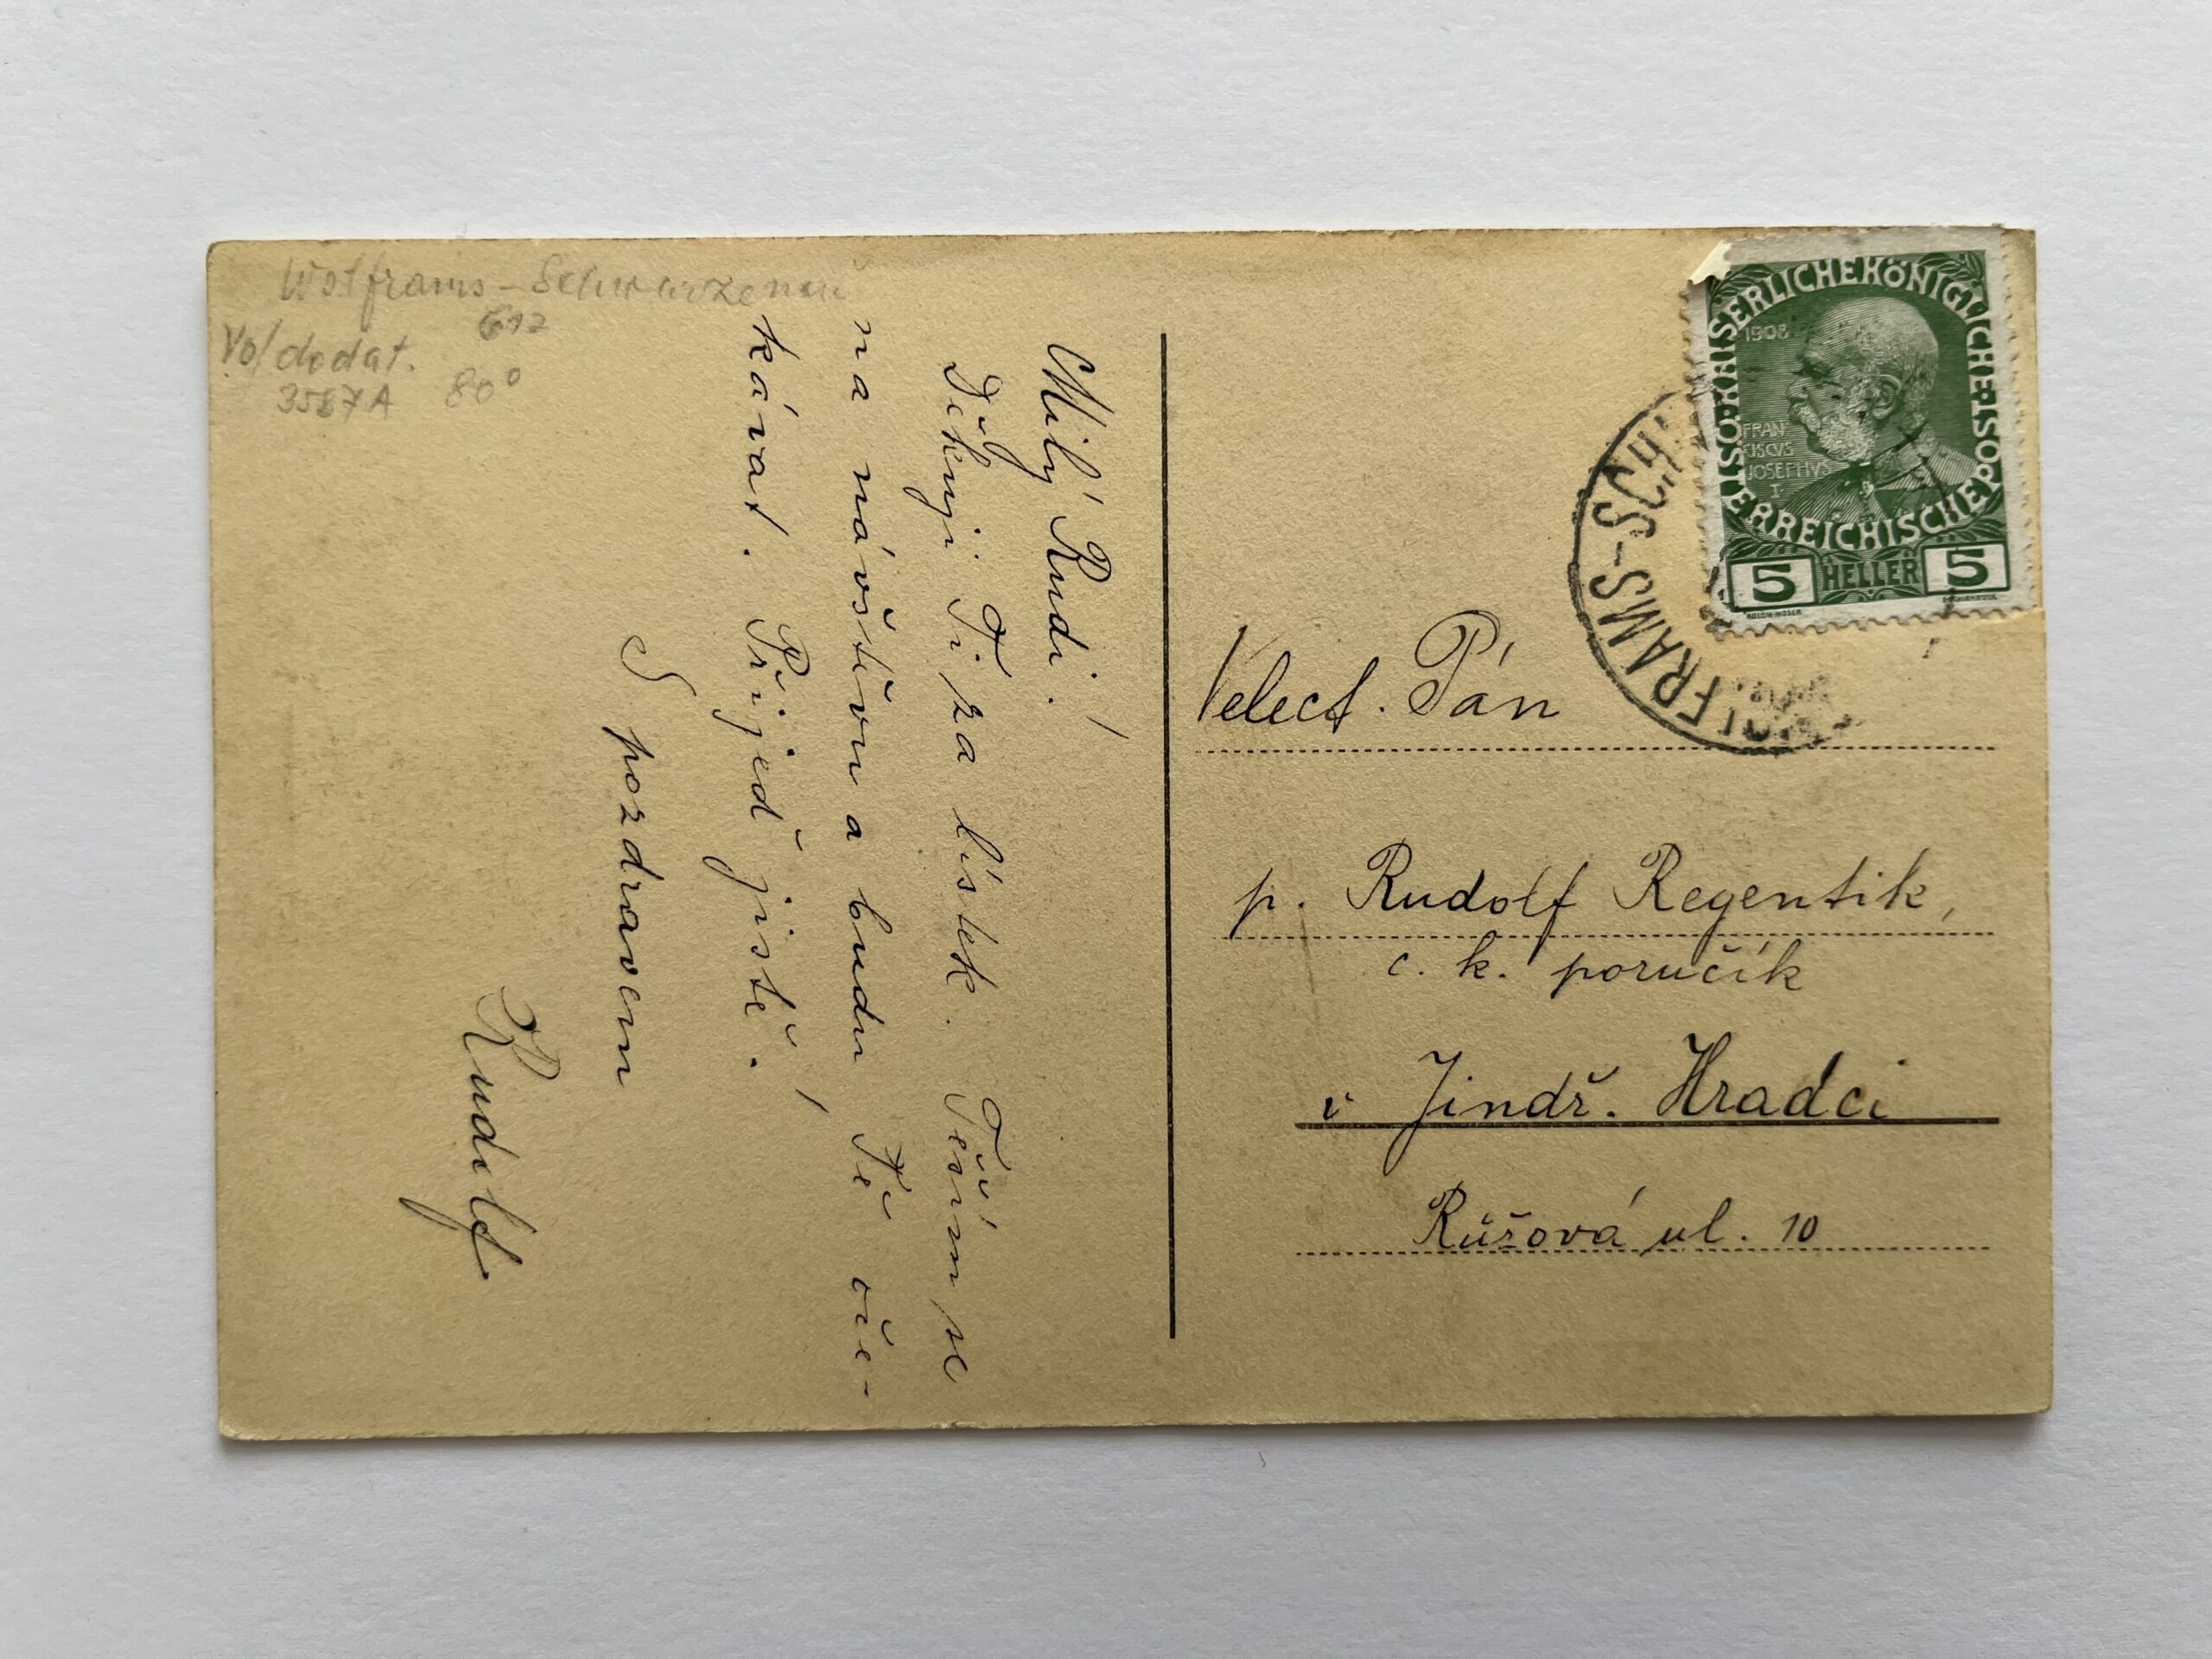 Wolframs – Schwarzenau
Vo/dodat.
3587A 80⁰
Milý Rudi!
Děkuji Ti za lístek. Těším se
na návštěvu a budu Tě oče-
kávat. Přijeď jistě!
S pozdravem
Rudolf
KAISERLICHE KÖNIGLICHE
ÖSTERREICHISCHE POST
1908
FRAN
CISCVS
JOSEPHVS
I.
5 HELLER 5
KOLOM·MOSER
FRAMS-SCH
Velect. Pán
p. Rudolf Regentik,
c. k. poručík
v Jindř. Hradci
Růžová ul. 10